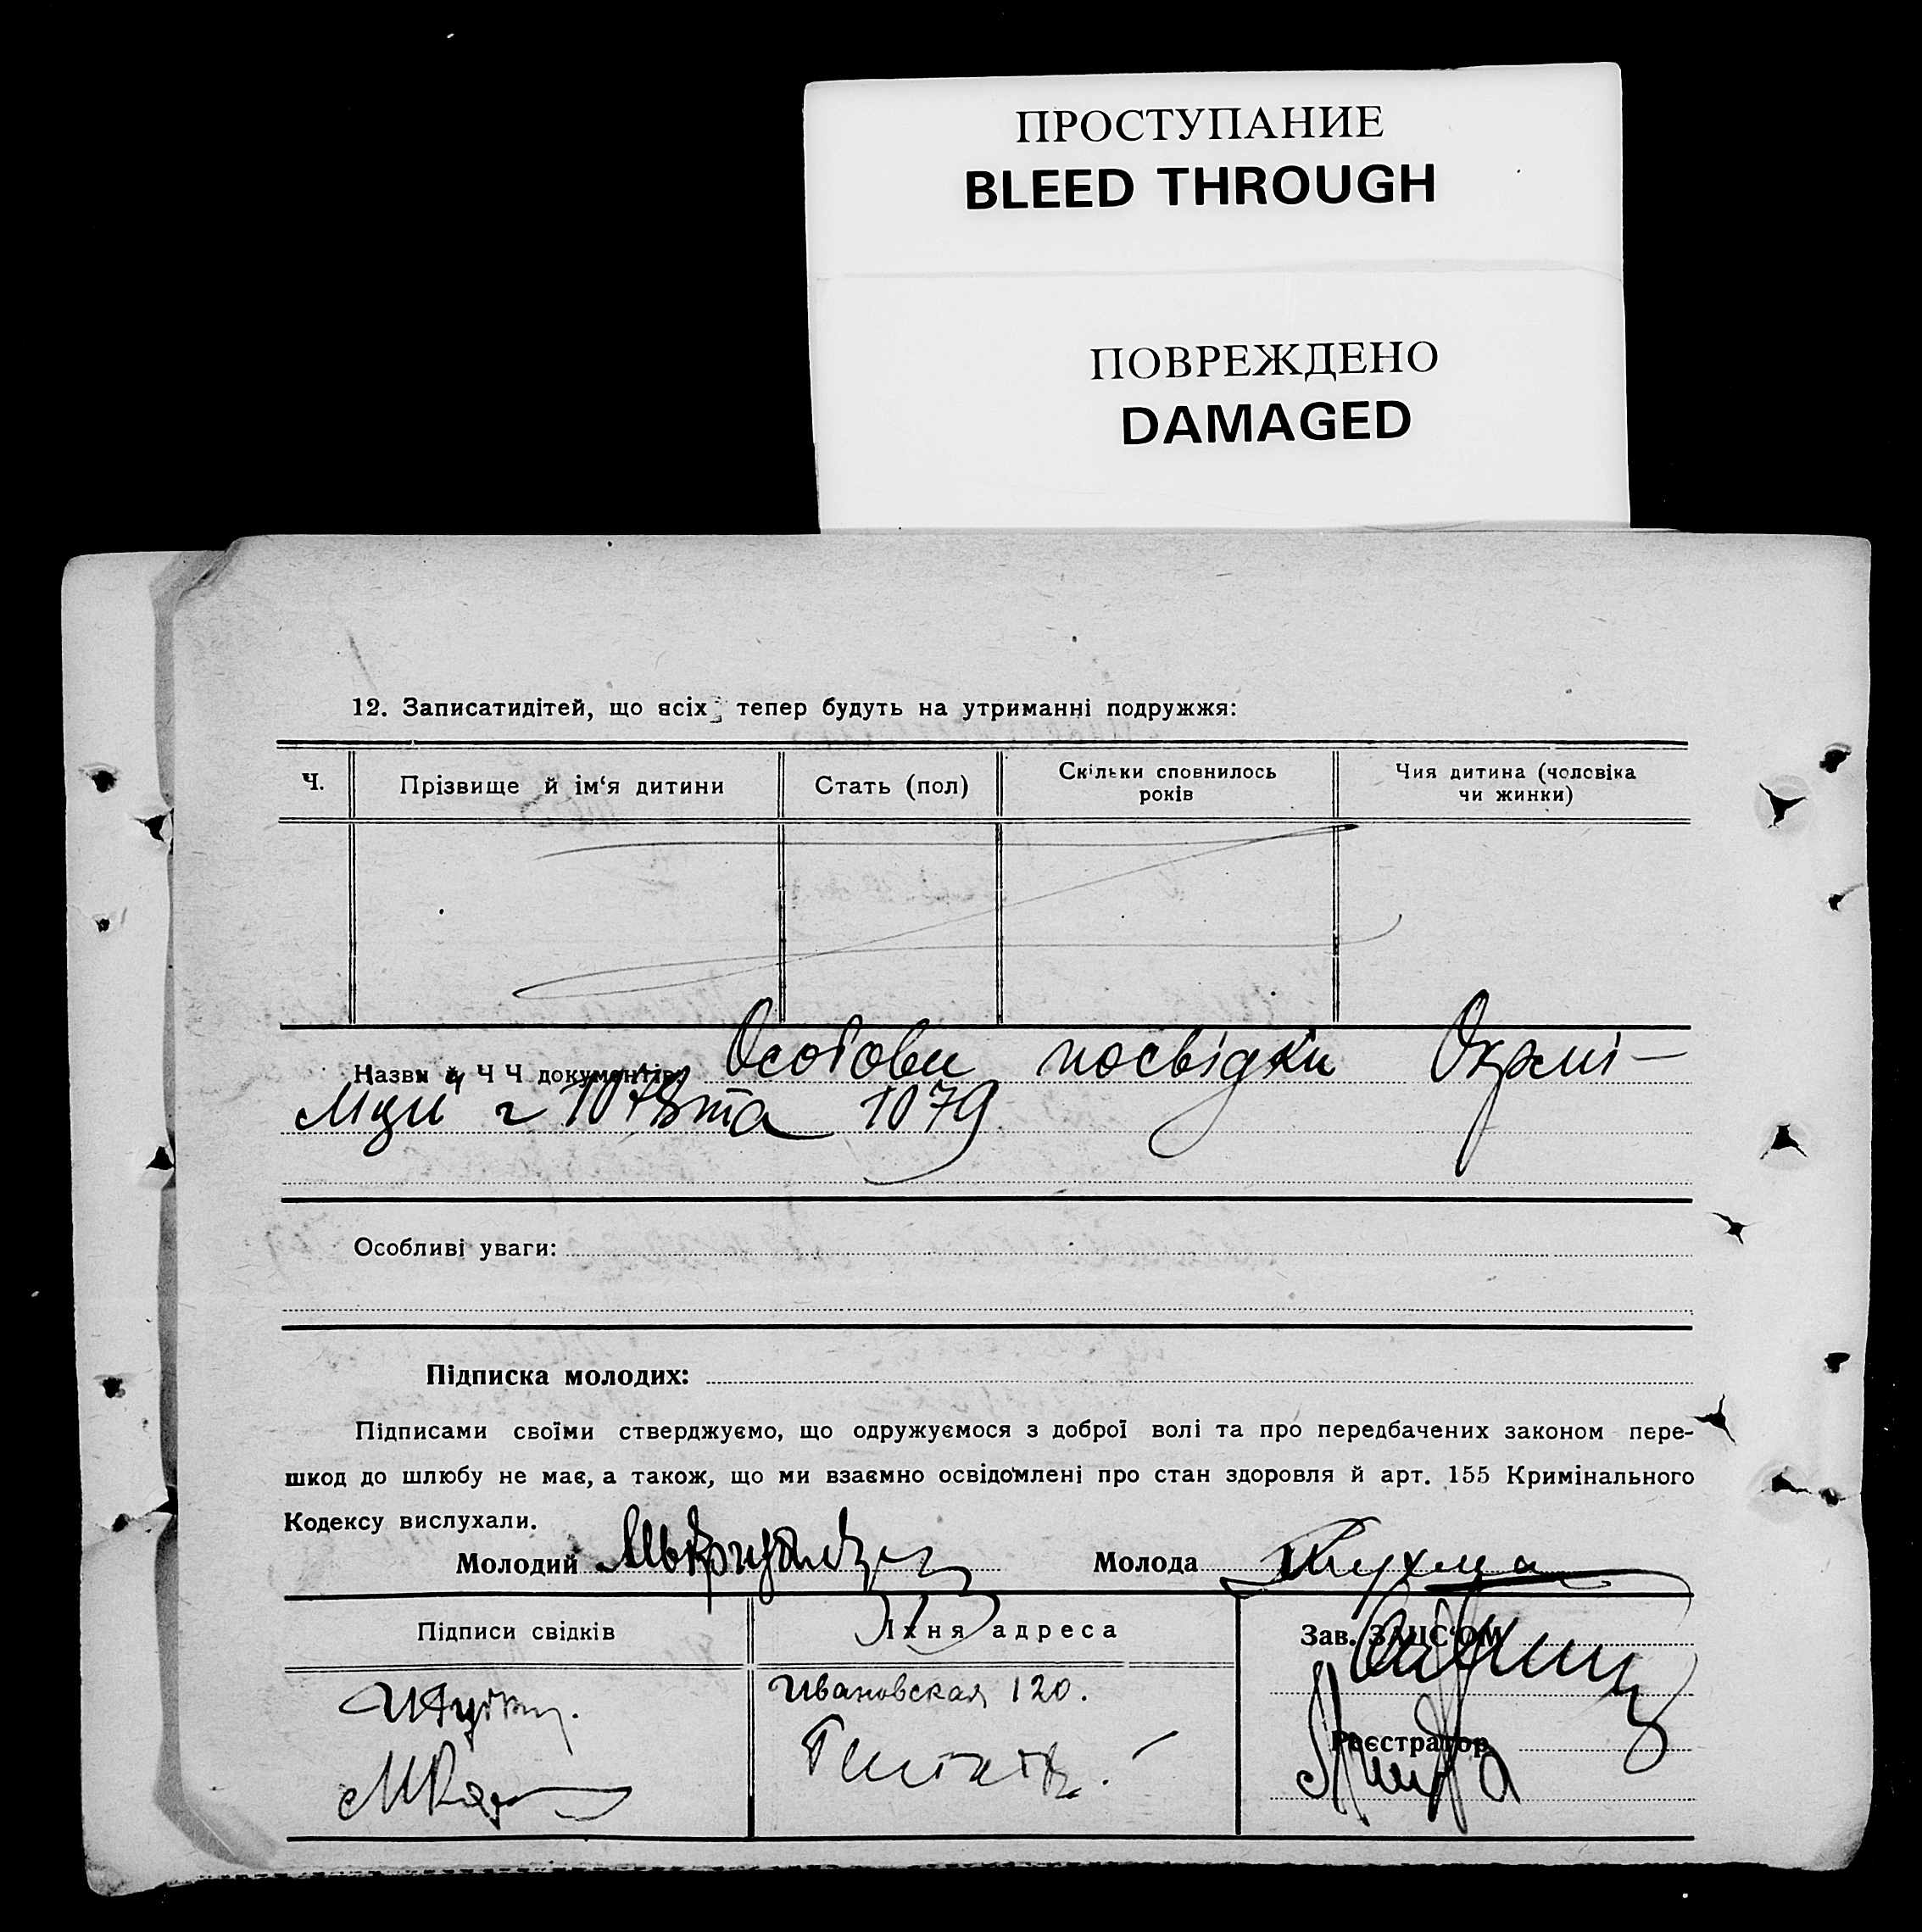 ПРОСТУПАНИЕ
BLEED THROUGH
ПОВРЕЖДЕНО
DAMAGED
12. Записатидітей, що всіх тепер будуть на утриманні подружжя:
Ч.
Прізвище й ім‘я дитини
Стать (пол)
Скільки сповнилось
років
Чия дитина (чоловіка
чи жинки)
Назви й Ч Ч документів: Особові посвідки Окрмі-
ліції 1078 та 1079
Особливі уваги:
Підписка молодих:
Підписами своїми стверджуємо, що одружуємося з доброї волі та про передбачених законом пере-
шкод до шлюбу не має, а також, що ми взаємно освідомлені про стан здоровля й арт. 155 Кримінального
Кодексу вислухали.
Молодий
Молода
Підписи свідків
Їхня адреса
Зав. ЗАЦС‘ОМ
Ивановская 120.
Реєстратор